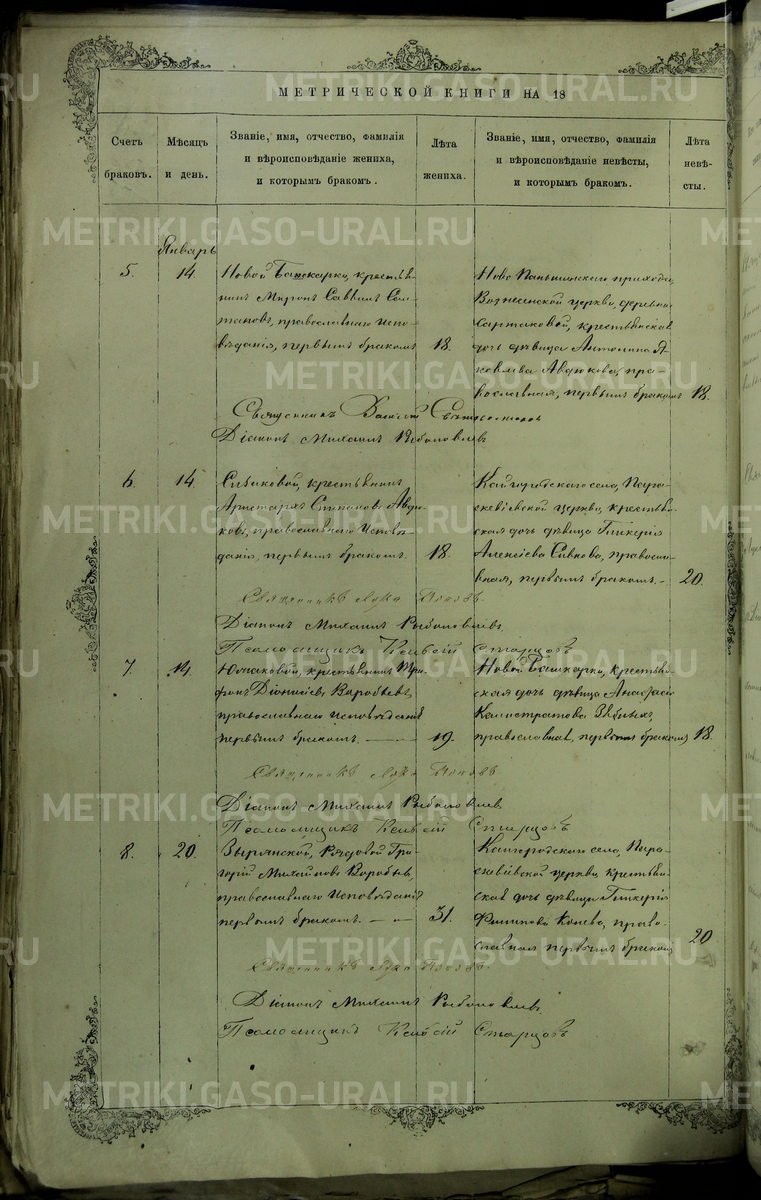 МЕТРИЧЕСКОЙ КНИГИ НА 18
Счетъ браковъ.
Мѣсяцъ и день.
Званіе, имя, отчество, фамилія
и вѣроисповѣданіе жениха,
и которымъ бракомъ.
Лѣта жениха.
Званіе, имя, отчество, фамилія
и вѣроисповѣданіе невѣсты,
и которымъ бракомъ.
Лѣта невѣсты.
Январь
5. 14.
Новой Башкарки, крестья-
нинъ Миронъ Саввинъ
православнаго испо-
вѣданія, первымъ бракомъ 18.
Ново Паньшинскаго прихода,
Вознесенской церкви, деревни
крестьянская
дочь дѣвица Антонина Я-
ковлева Авдюкова, пра-
вославная, первымъ бракомъ 18.
Священникъ
Діаконъ Михаилъ
6. 14
крестьянинъ
Аристархъ Степановъ Авдю-
ковъ, православнаго исповѣ-
данія, первымъ бракомъ. 18.
Кайгородскаго села, Пара-
скевіевской церкви, крестьян-
ская дочь дѣвица Гликерія
Алексіева Сивкова, правосла-
вная, первымъ бракомъ. 20.
Священникъ Лука Поповъ
Діаконъ Михаилъ
Псаломщикъ Старцовъ
7. 14.
крестьянинъ Три-
фонъ Діонисіевъ Воробьевъ,
православнаго исповѣданія
первымъ бракомъ. 19.
Новой Башкарки, крестьян-
ская дочь дѣвица Анастасія
Калистратова Зяблыхъ,
православная, первымъ бракомъ 18.
Священникъ Лука Поповъ
Діаконъ Михаилъ
Псаломщикъ Старцовъ
8. 20.
Зырянской, Рядовой Гри-
горій Михайловъ Воробьевъ,
православнаго исповѣданія
первымъ бракомъ. 31.
Кайгородскаго села, Пара-
скевіевской церкви крестьян-
ская дочь дѣвица Гликерія
Филиппова Конева, право-
славная первымъ бракомъ 20
Священникъ Лука Поповъ.
Діаконъ Михаилъ
Псаломщикъ Старцовъ
METRIKI.GASO-URAL.RU